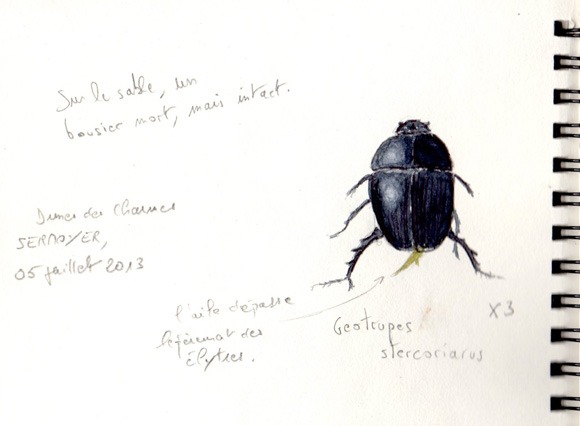 Sur le sable, un
bousier mort, mais intact.
Dunes des Charmes
SERMOYER,
05 juillet 2013
l'aile dépasse
légèrement des
élytres.
Geotrupes
stercorarius
X3